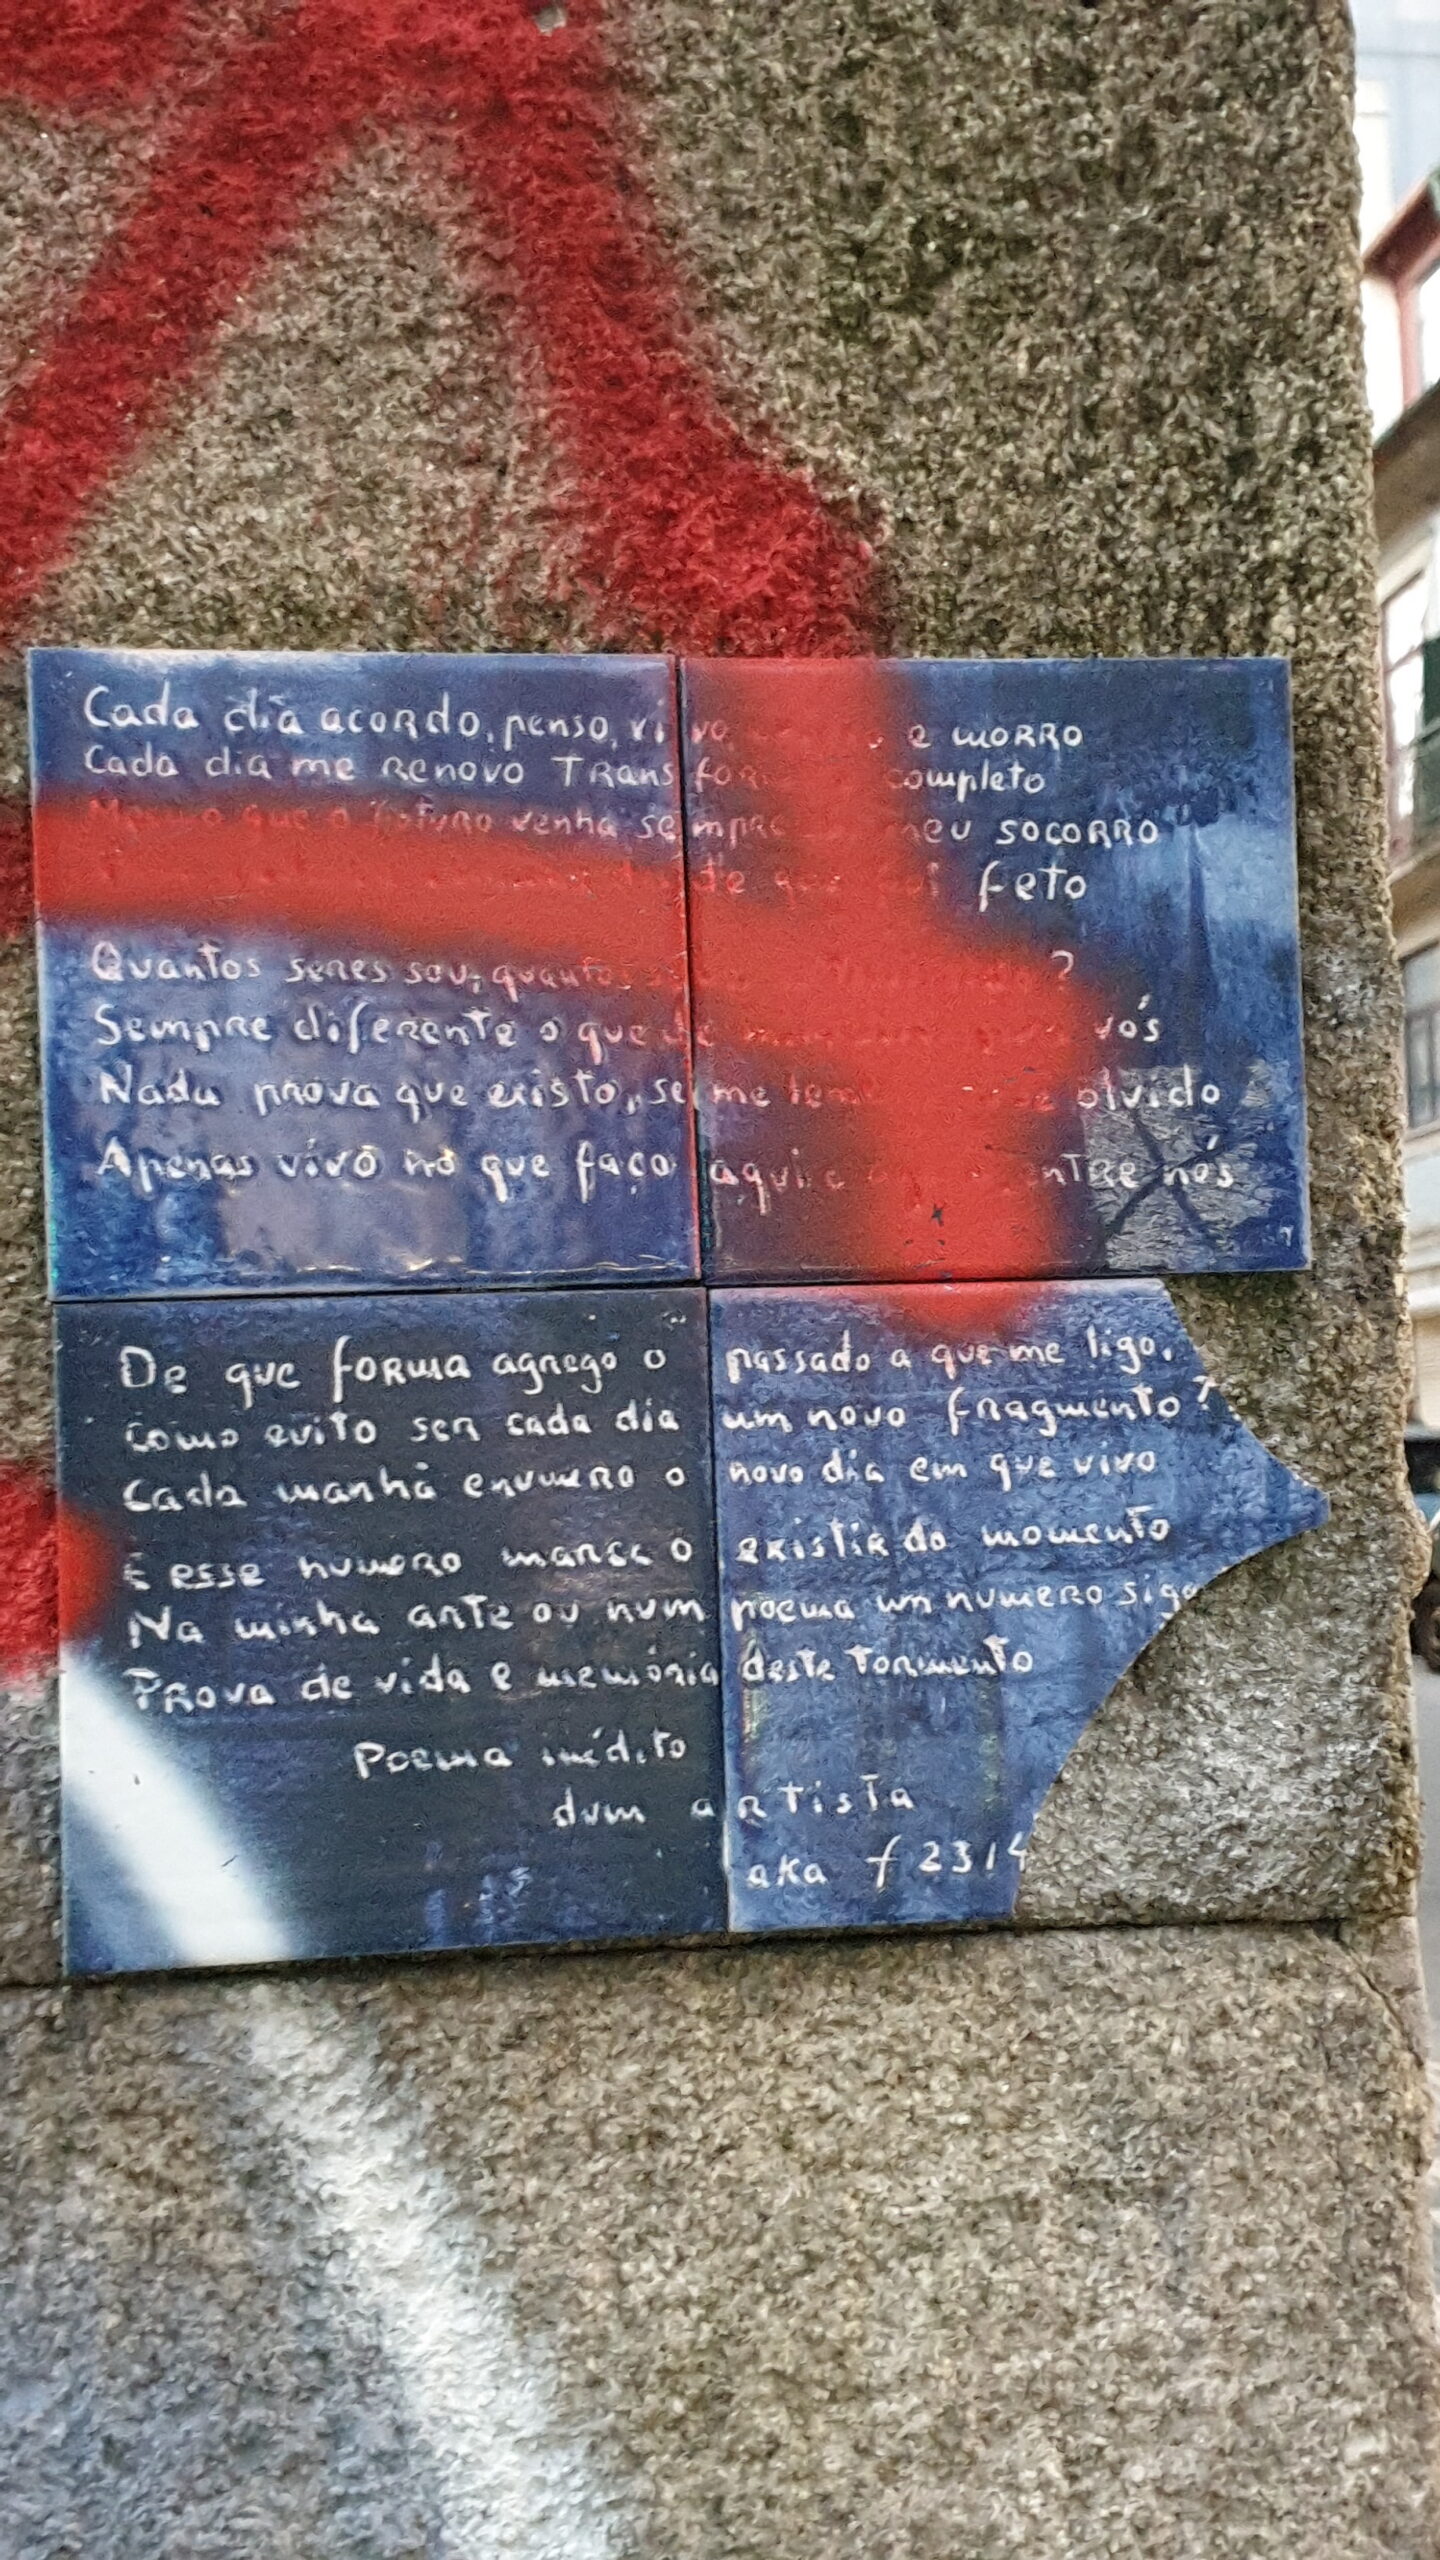 Cada dia acordo, penso, vivo e morro
Cada dia me renovo Trans completo
que o futuro venha sempre meu socorro
de que feto
Quantos seres sou, quantos ?
Sempre diferente o que vós
Nada prova que existo, se me olvido
Apenas vivo no que faço aqui e entre nós
De que forma agrego o passado a que me ligo,
Como evito ser cada dia um novo fragmento?
Cada manhã enumero o novo dia em que vivo
E esse numero marca o existir do momento
Na minha arte ou num poema um numero sigo
Prova de vida e memória deste tormento
Poema inédito
dum artista
aka f 2314